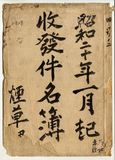 昭和二十年一月起
收發件名簿
煙草